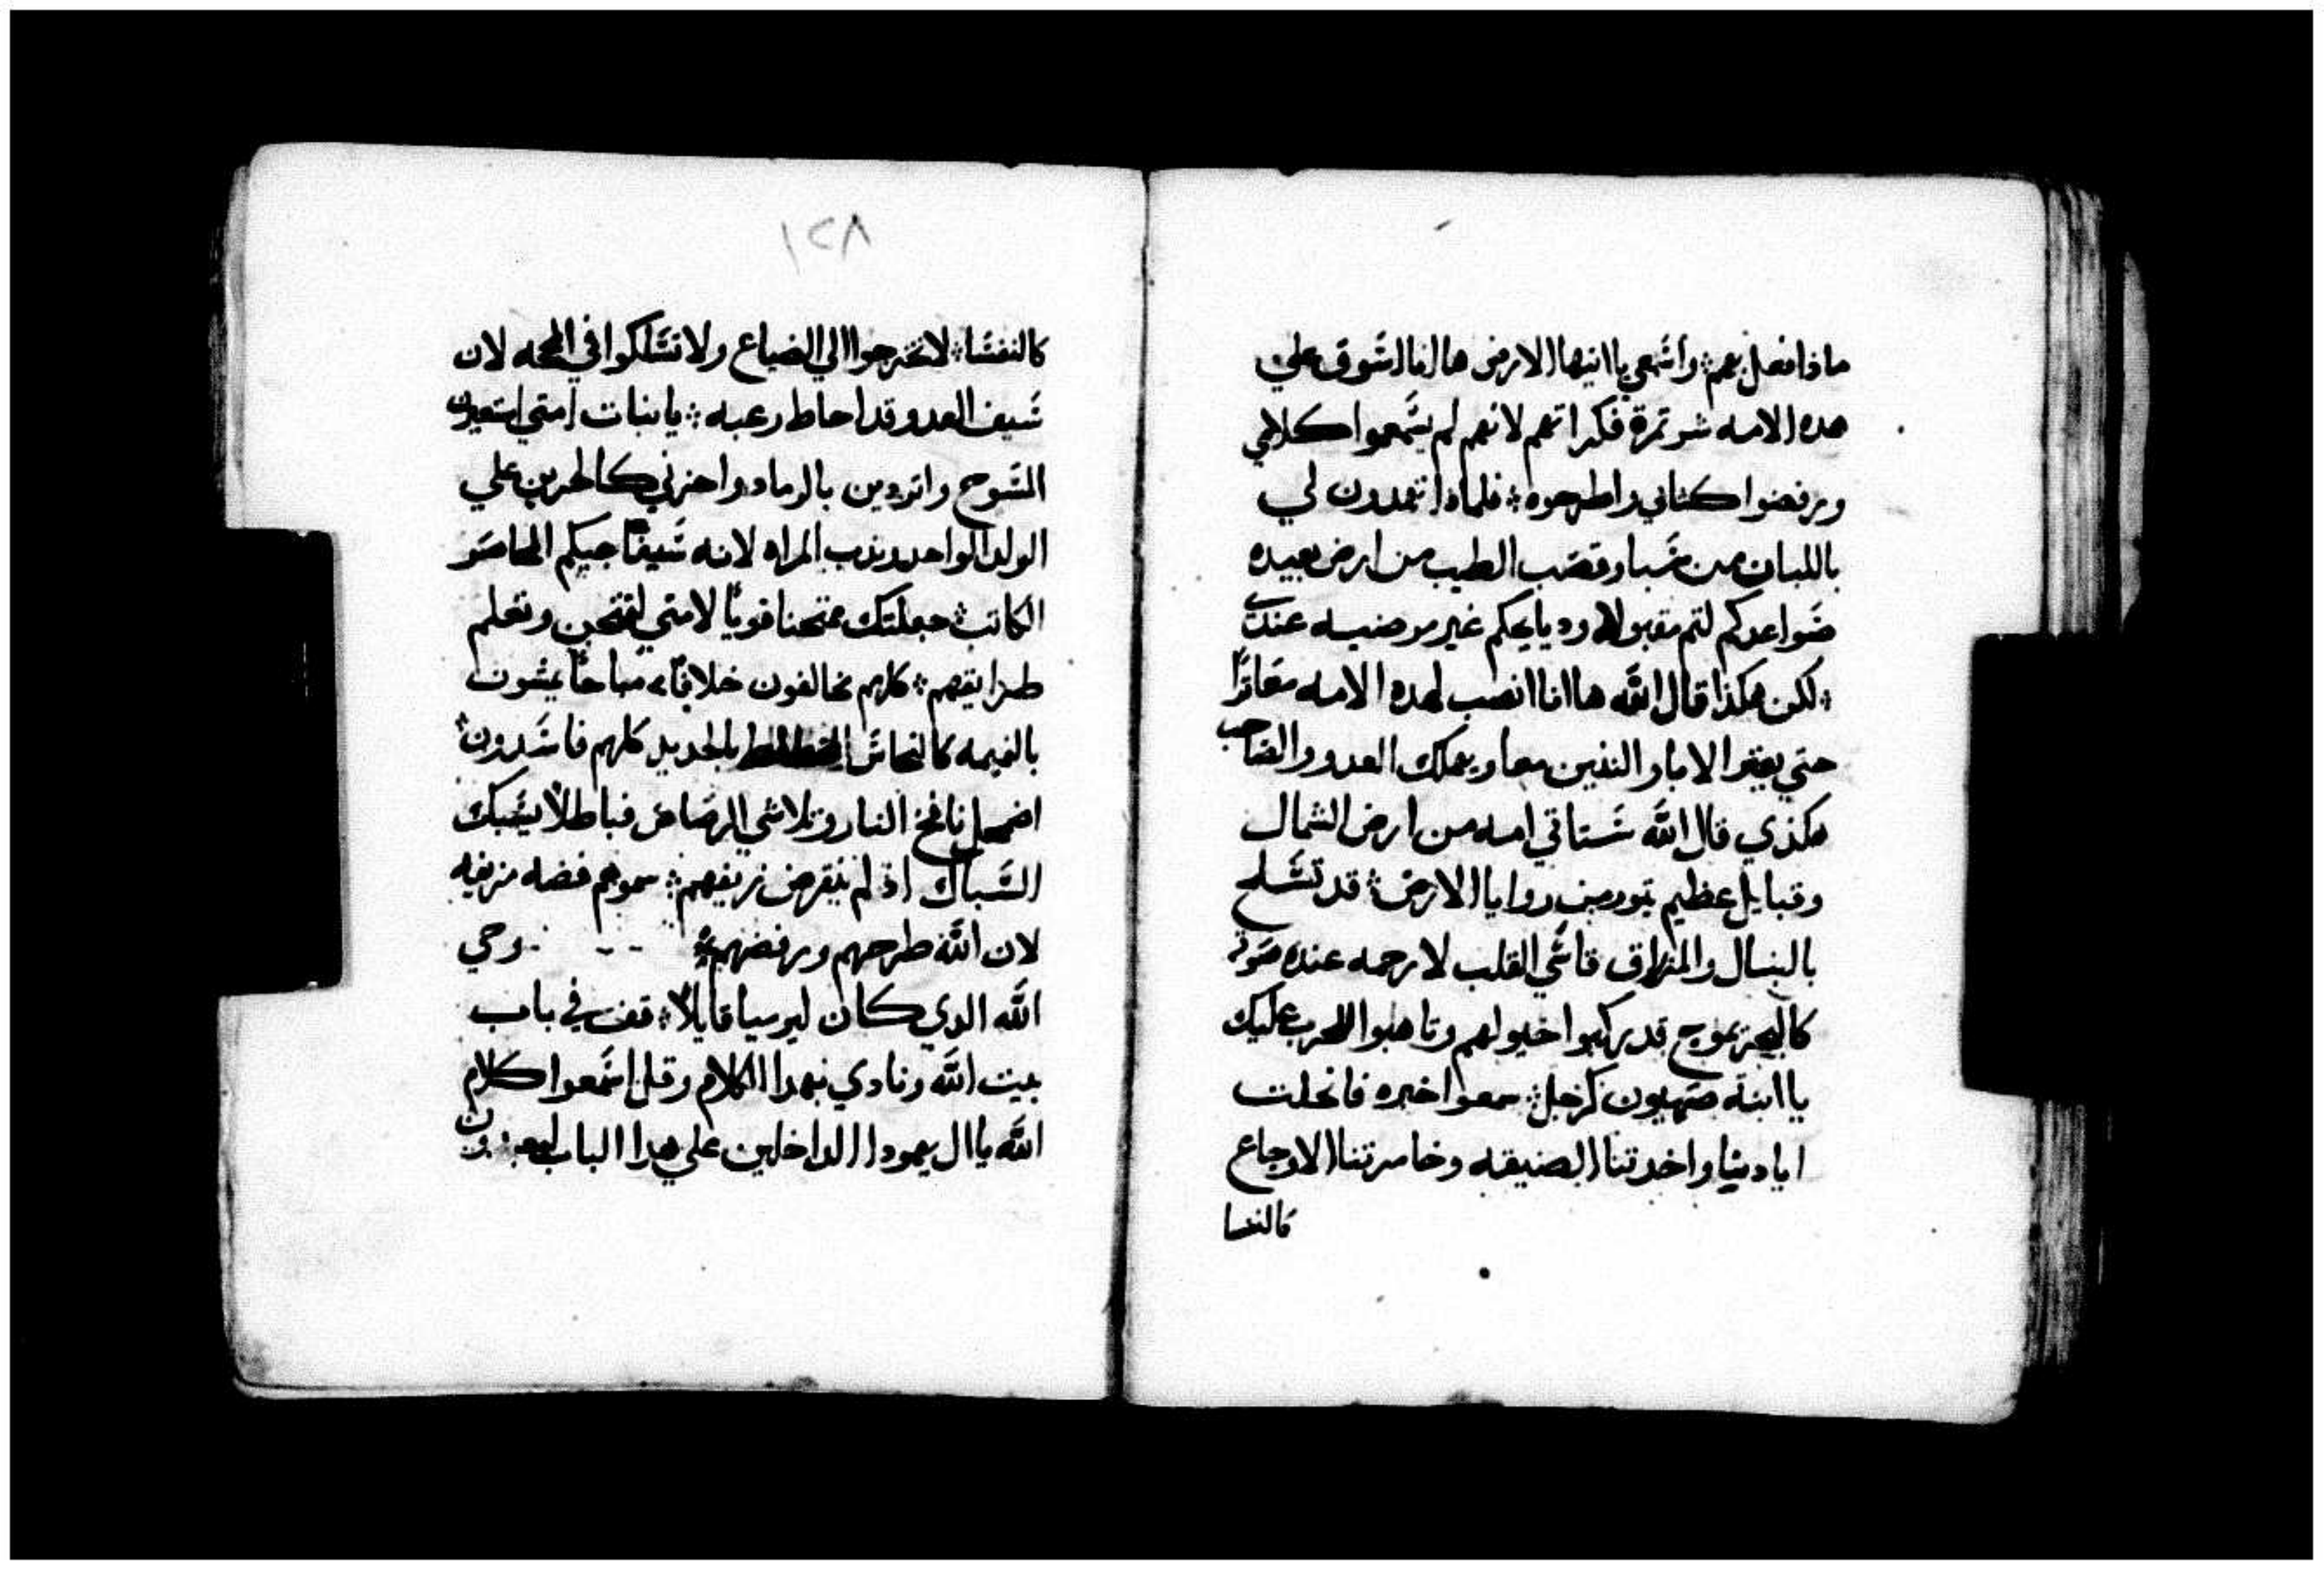 ماذا افعل بهم؛ واسمعي يا ايتها الارض ها انا اسوق علي
هده الامه شر ثمرة فكراتهم لانهم لم يسمعوا كلامي
ورفضوا كتابي واطرحوه؛ فلماذا تهدون لي
باللبان من سبا وقصب الطيب من ارض بعيده
صواعدكم لتم مقبولا ودبايحكم غير مرضيه عندي
؛لكن هكذا قال الله ها انا انصب لهده الامه معاثرًا
حتي يعثر الابا والبنين معا ويهلك العدو والصاحب
هكذي قال الله ستاتي امه من ارض الشمال
وقبايل عظيم تتور من زوايا الارض؛ قد تسلح
بالنبال والمزراق قاسي القلب لا رحمه عنده صوته
كالبحر يموج قد ركبوا خيولهم وتاهبوا للحرب عليك
يا ابنة صهيون كرجل؛ سمعوا خبره فانحلت
ايادينا واخدتنا الضيقه وخامرتنا الاوجاع
كالنفسا
١٢٨
كالنفسا؛ لا تخرجوا الي الضياع ولا تسلكوا في المحجه لان
سيف العدو قد احاط رعبه؛ يا بنات امتي استعدين
المسوح واتردين بالرماد واحزني كالحزين علي
الولد الواحد وندب المراه لانه سيفاجيكم المحاصر
الكاتب؛ جعلتك ممتحنا قويًا لامتي لتمتحن وتعلم
طرايقهم؛ كلهم يخالفون خلافًا، مباحًا يمشون
بالنميمه كالنحاس بالحديد كلهم فاسدون؛
اضمحل نافخ النار وتلاشي الرصاص فباطلاً يسبك
السباك اذ لم ينقرض زيفهم؛ سموهم فضه مزيفه
لان الله طرحهم ورفضهم؛ وحي
الله الدي كان ليرميا قايلاً؛ قف في باب
بيت الله ونادي بهدا الكلام وقل اسمعوا كلام
الله يا ال يهودا الداخلين علي هدا الباب